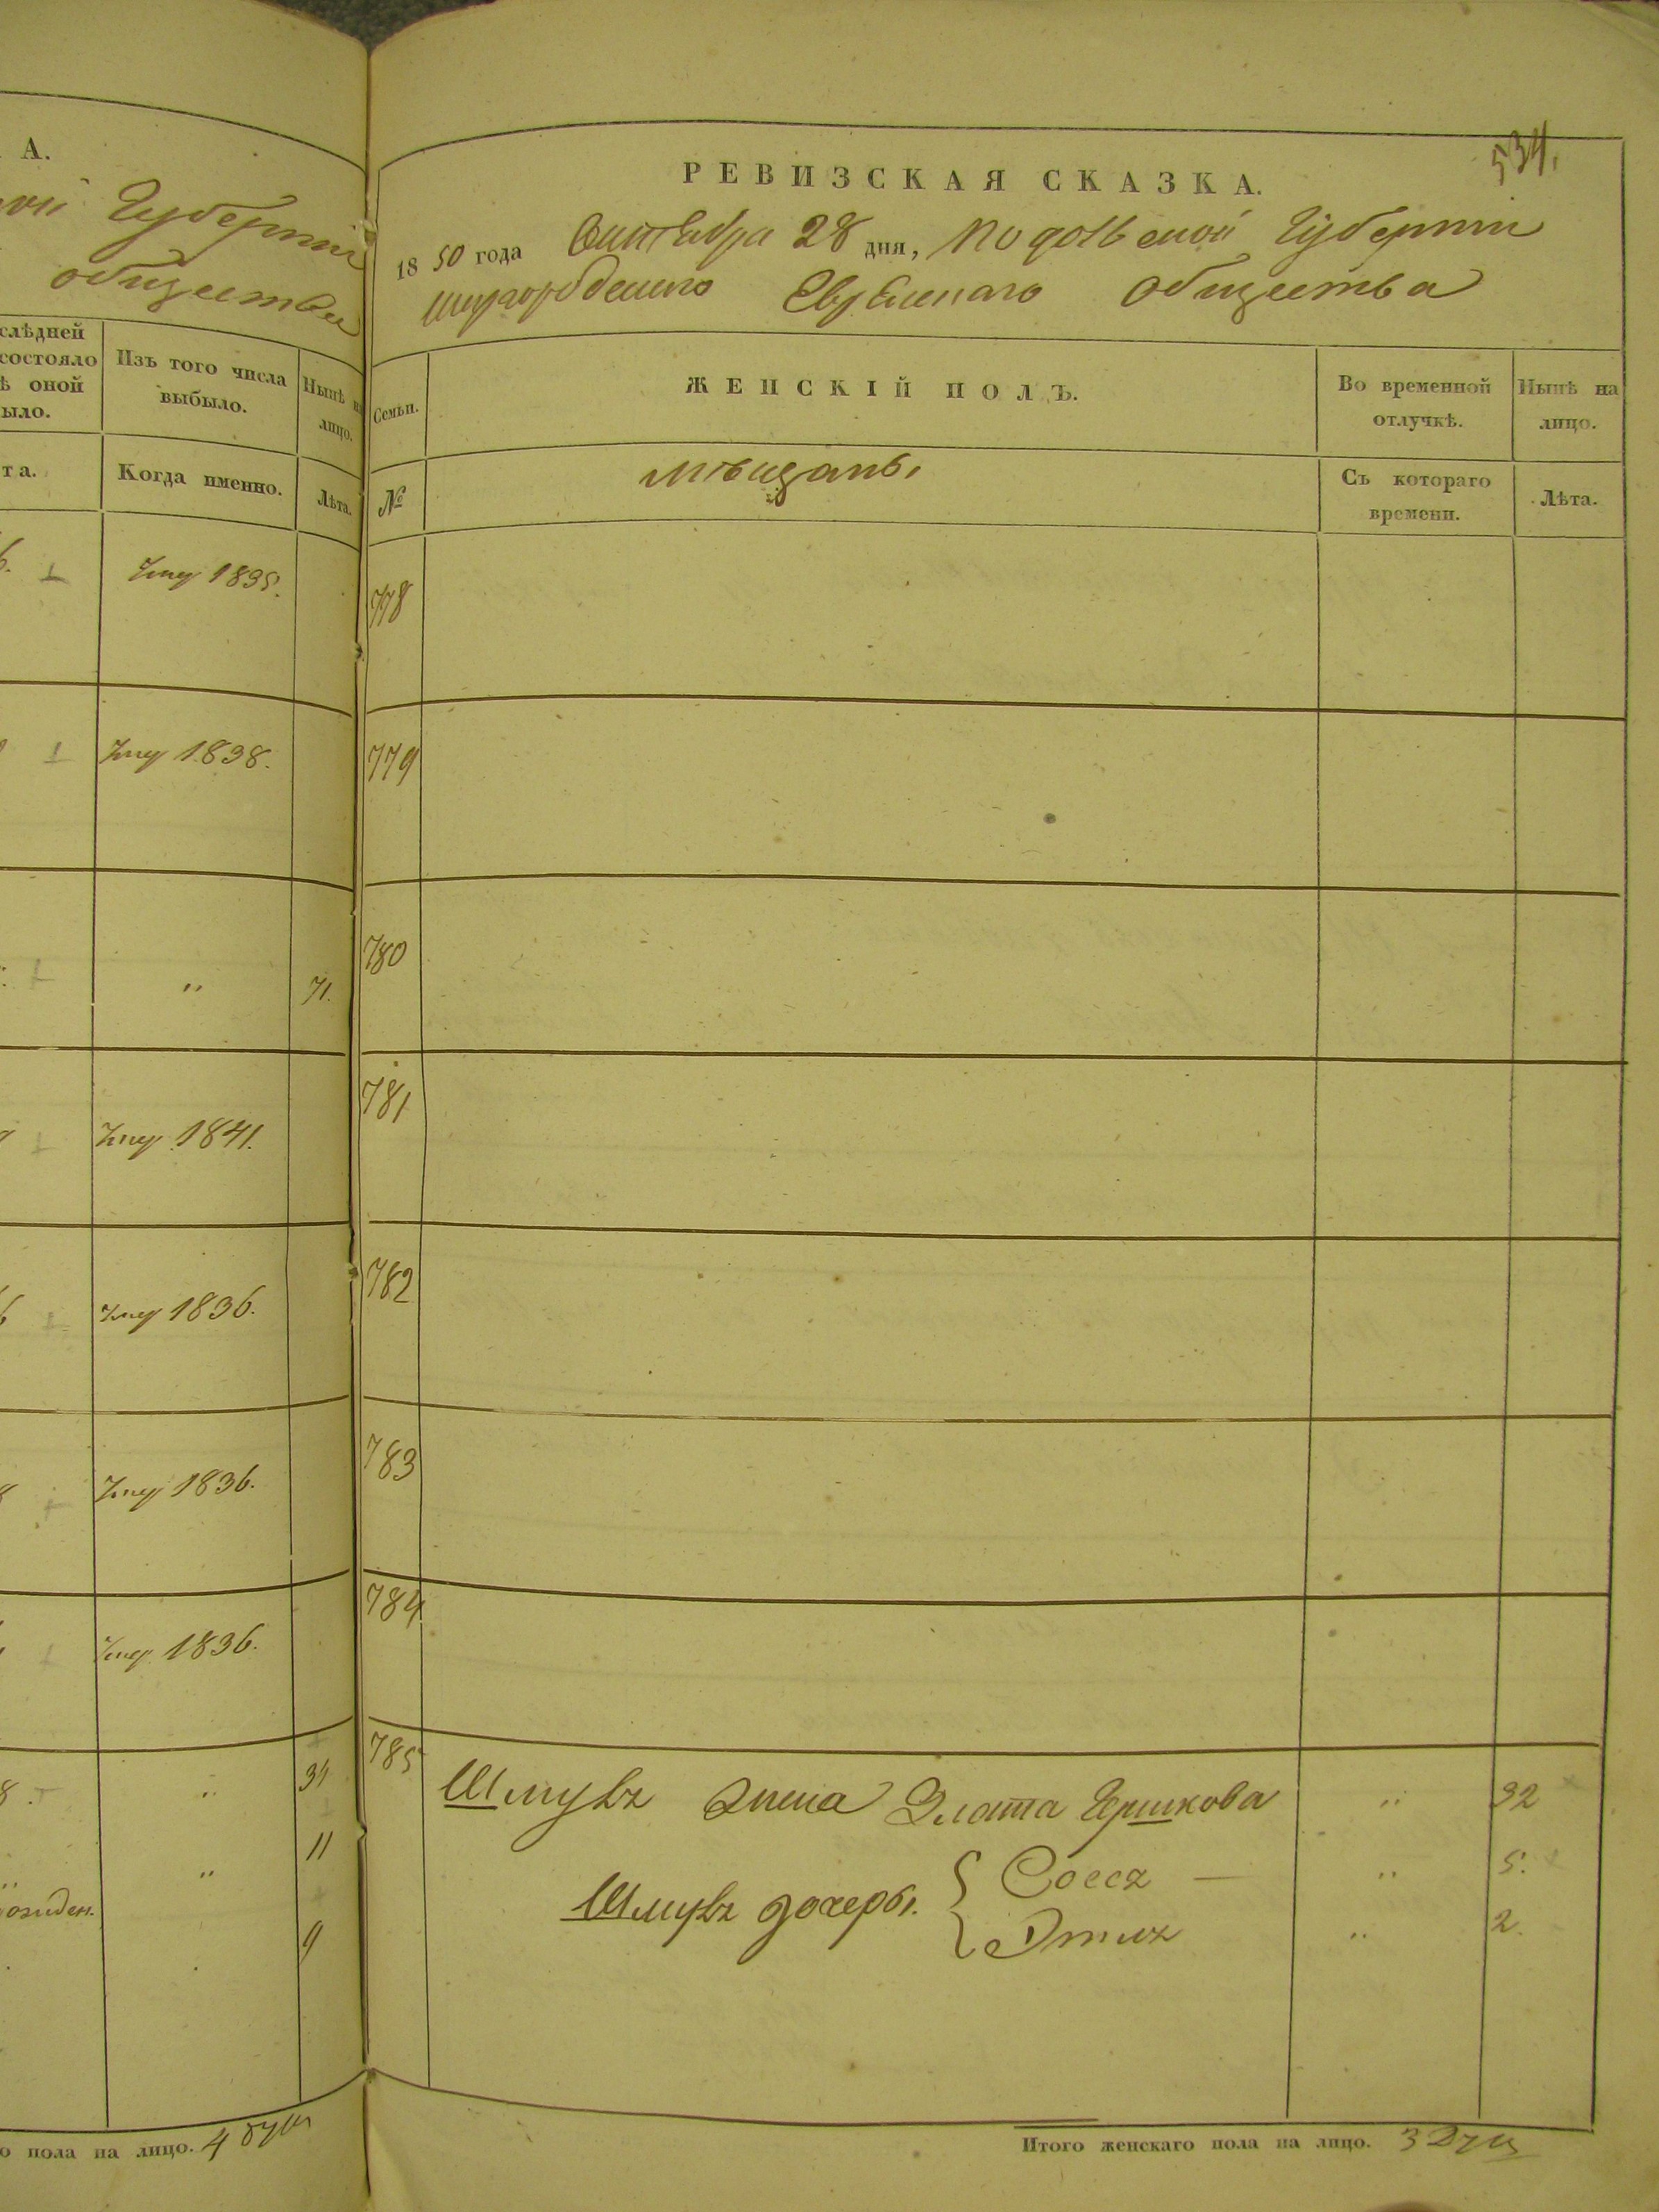 А.
Губерніи
общества
слѣдней
состояло
ѣ оной
ыло.
Изъ того числа
выбыло.
Нынѣ на
лицо.
та.
Когда именно.
Лѣта.
1835.
1838.
"
71.
1841.
1836.
1836.
1836.
"
34
"
11
9
о пола на лицо. 4 душ
534.
РЕВИЗСКАЯ СКАЗКА.
1850 года Октября 28 дня, Подольской Губерніи
Шаргородскаго Еврейскаго Общества
Семьи.
ЖЕНСКІЙ ПОЛЪ.
Во временной
отлучкѣ.
Нынѣ на
лицо.
№
мѣщаны
Съ котораго
времени.
Лѣта.
778
779
780
781
782
783
784
785
Шмуля жена Злота Гершкова " 32
Шмуля дочеры. { Сося — " 5.
Этля " 2.
Итого женскаго пола на лицо. 3 Душ